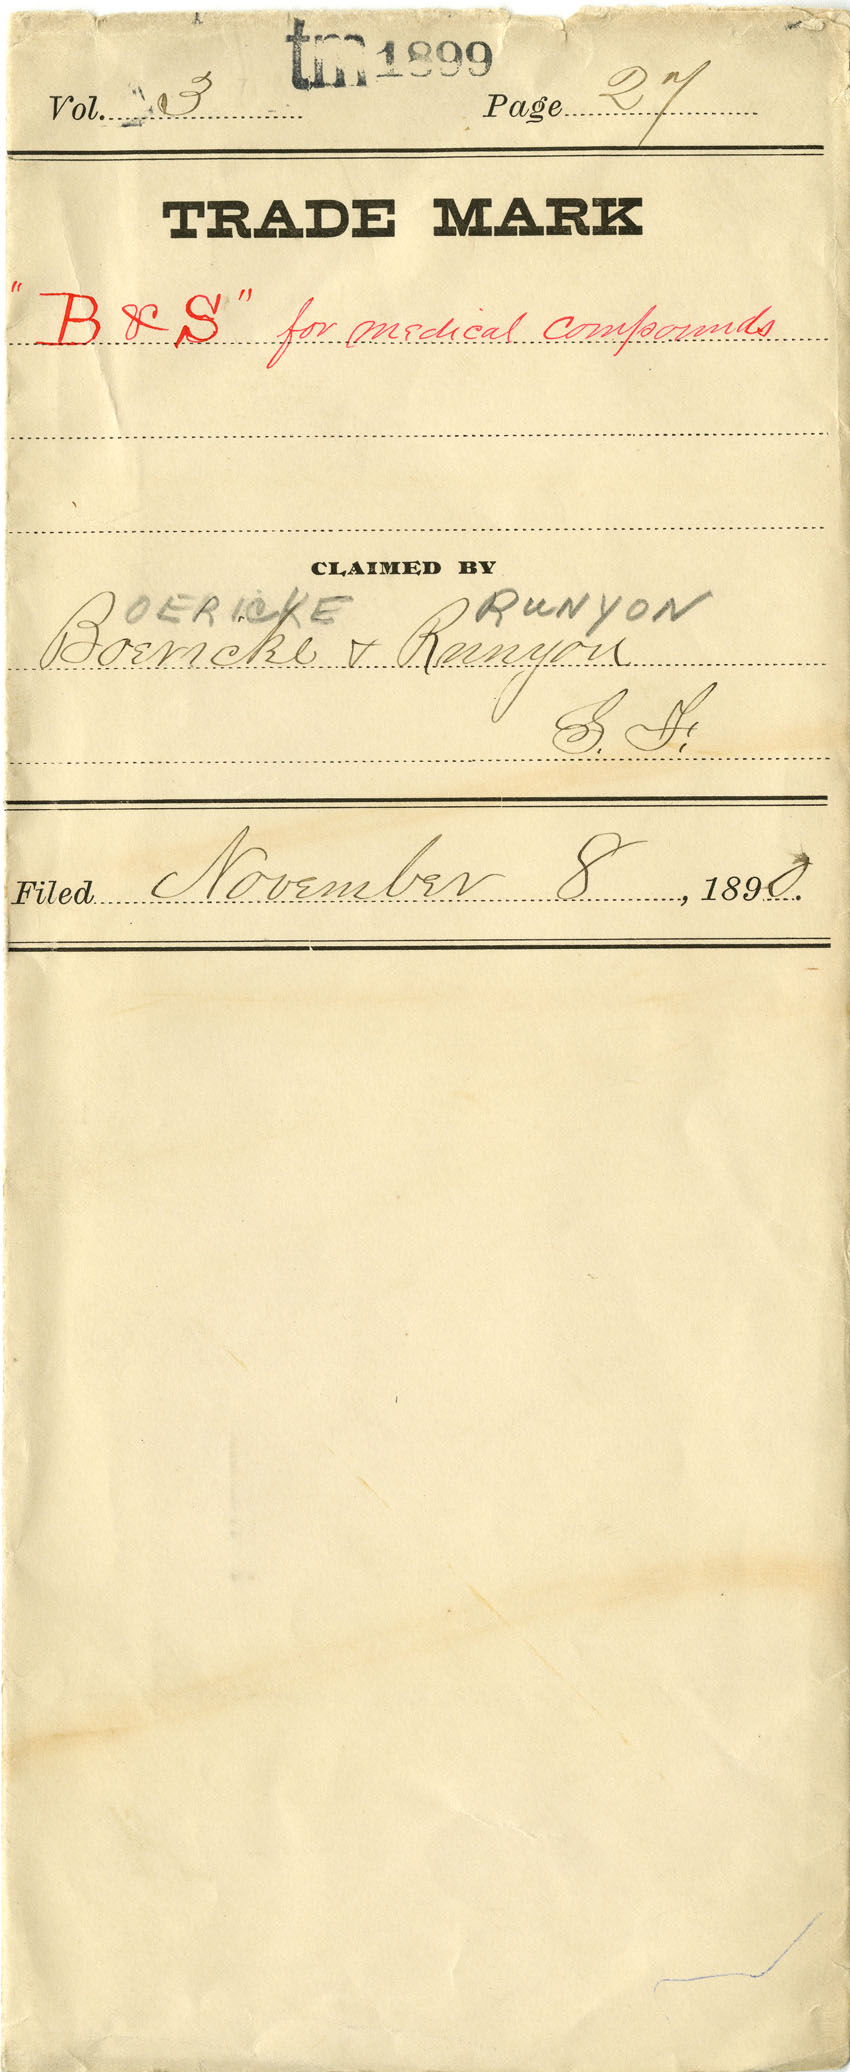 tm 1899
Vol. 3 Page 27
TRADE MARK
"B & S" for medical compounds
CLAIMED BY
OERICKE RUNYON
Boericke & Runyon
S. F.
Filed November 8, 1890.